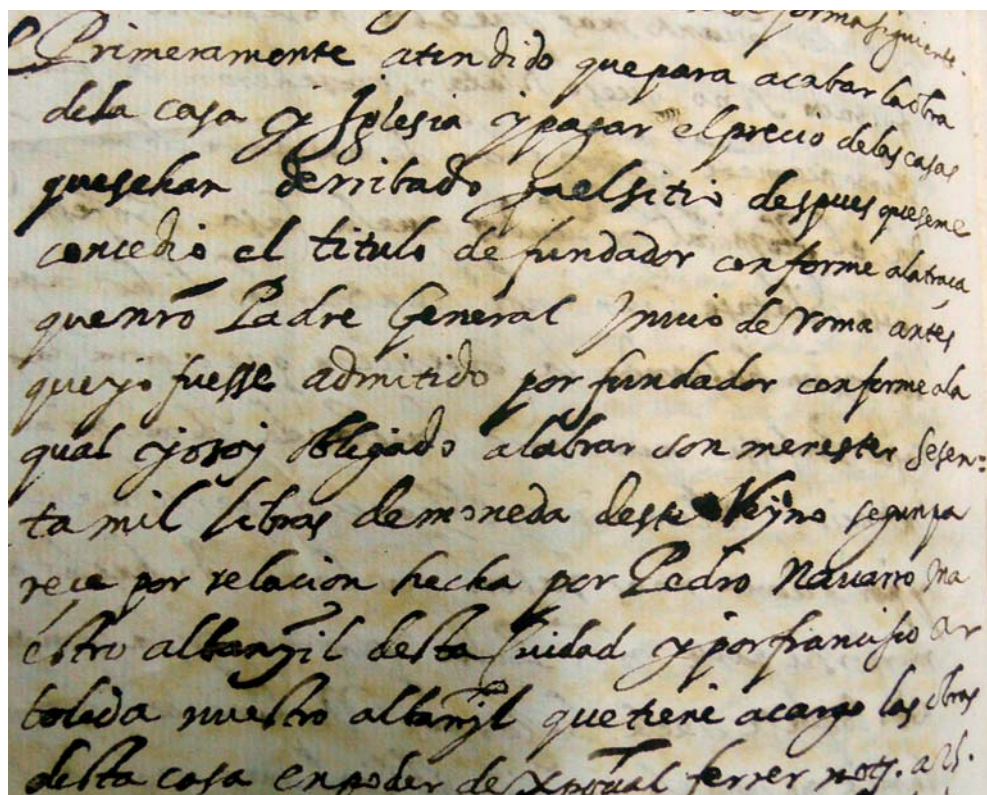 forma siguiente.
Primeramente atendido que para acabar la obra
dela casa y Iglesia y pagar el precio delas casas
quesehan derribado para elsitio despues queseme
concedio el titulo de fundador conforme ala traça
que nrō Padre General Jnuio de roma antes
queyo fuesse admitido por fundador conforme ala
qual yo soy obligado alabrar son menester sesen=
ta mil libras demoneda deste Reyno segun pa
rece por relacion hecha por Pedro Nauarro ma
estro albañjl desta Ciudad y por francisco ar
boleda nuestro albañjl que tiene acargo las obras
desta casa enpoder de Xpoual ferrer noty.